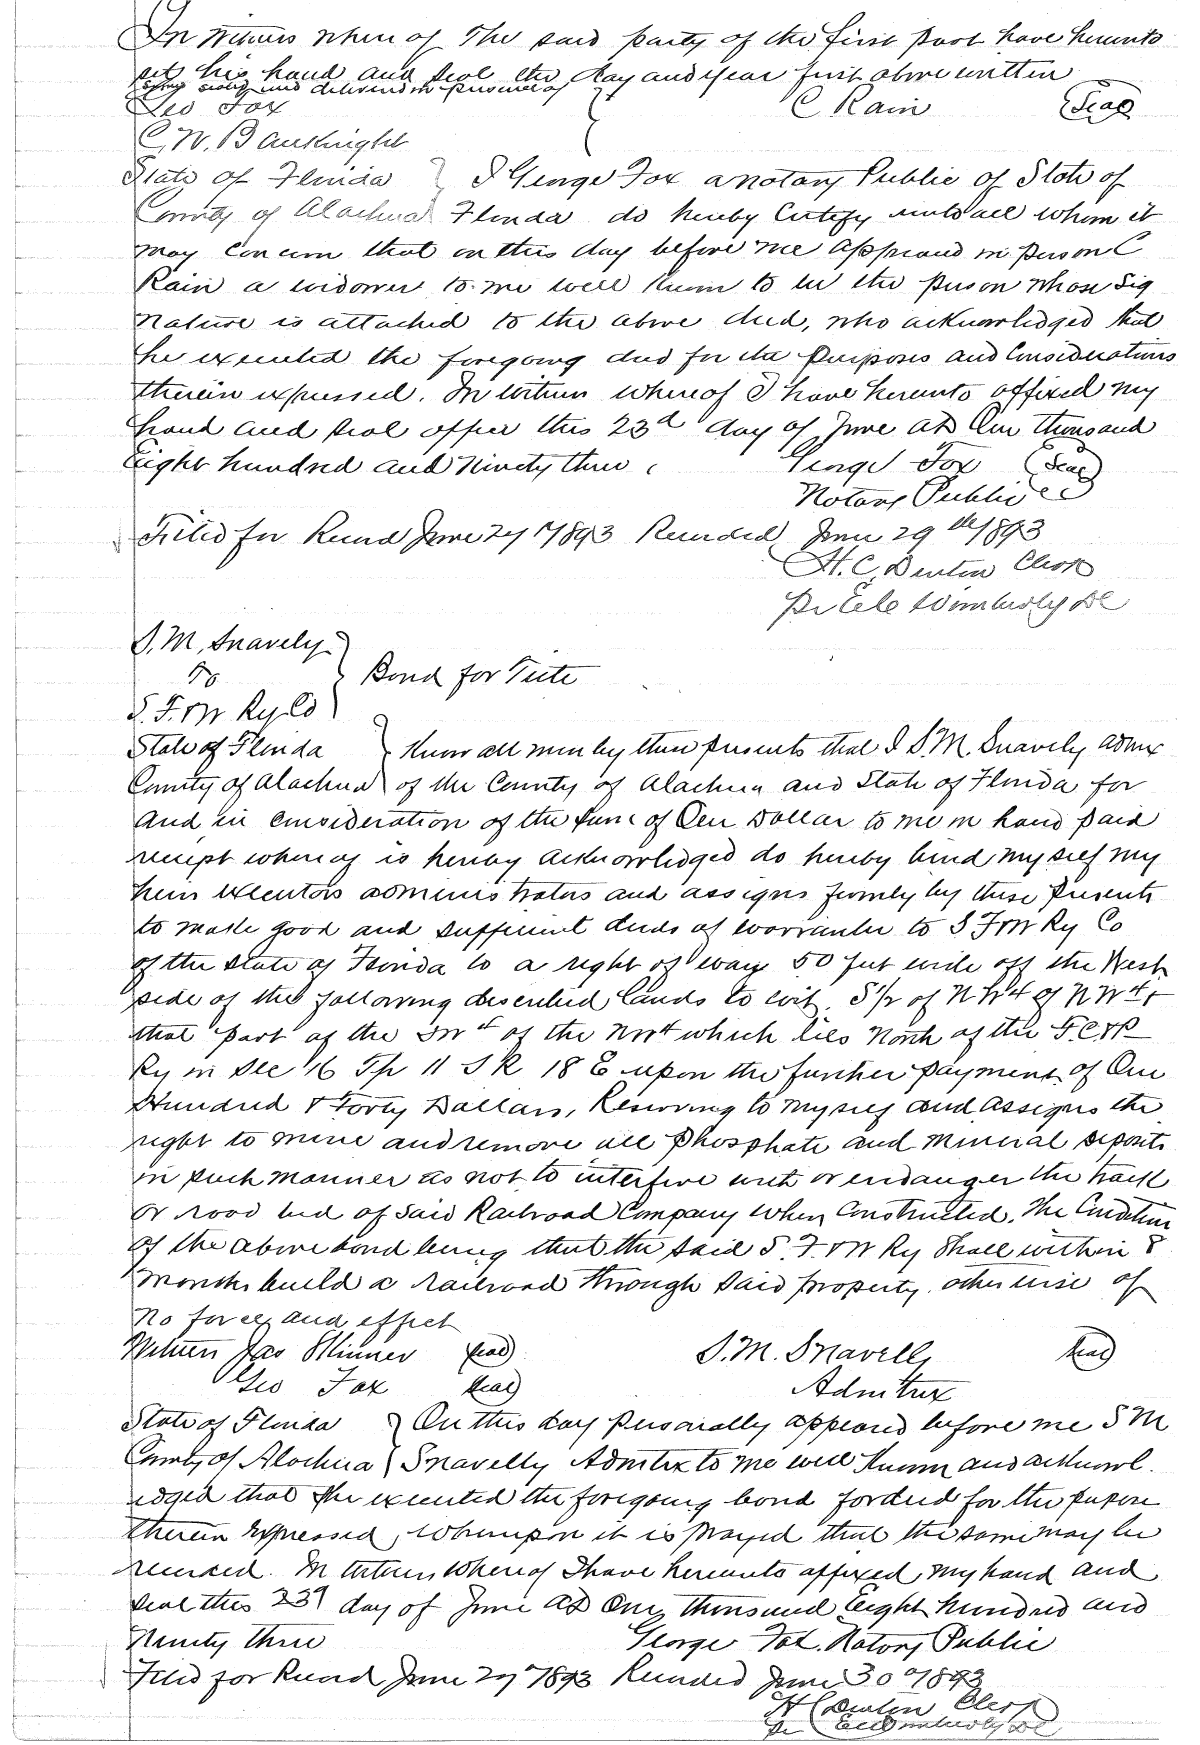 In Witness Where of The said party of the first part have hereunto
set his hand and seal the day and year first above written
Signed sealed and delivered in presence of
Geo Fox C Rain (Seal)
C. W. Bauknight
State of Florida } I George Fox a notary Public of State of
County of Alachua Florida do hereby Certify unto all whom it
may concern that on this day before me appeared in person C
Rain a widower to me well known to be the person whose Sig
nature is attached to the above deed, who acknowledged that
he executed the foregoing deed for the purposes and Considerations
therein expressed. In witness whereof I have hereunto affixed my
hand and seal office this 23d day of June AD One thousand
Eight hundred and Ninety three. George Fox (Seal)
Notary Public
Filed for Record June 27 1893 Recorded June 29th 1893
H. C. Denton Clerk
Wimberly DC
S. M. Snavely }
To } Bond for Title
S. F. & W Ry Co }
State of Florida } Know all men by these presents that I S. M. Snavely admx
County of Alachua } of the County of Alachua and State of Florida for
and in consideration of the sum of One Dollar to me in hand paid
receipt whereof is hereby acknowledged do hereby bind myself my
heirs executors administrators and assigns firmly by these presents
to make good and sufficient deeds of warrantee to S F & W Ry Co
of the State of Florida to a right of way 50 feet wide off the West
side of the following described lands to wit. S 1/2 of N W 4 of N W 4 &
that part of the S W 4 of the N W 4 which lies North of the F. C & P
Ry in Sec 16 Tp 11 S R 18 E upon the further payment of One
Hundred & Forty Dollars, Reserving to myself and assigns the
right to mine and remove all phosphate and mineral deposits
in such manner as not to interfere with or endanger the track
or road bed of said Railroad Company when Constructed. The Condition
of the above bond being that the said S. F. & W Ry Shall within 8
months build a railroad through said property. otherwise of
no force and effect
Witness Jas Skinner (seal) S. M. Snavelly (seal)
Geo Fox (seal) Admitrix
State of Florida } On this day personally appeared before me S M
County of Alachua } Snavelly Admitrix to me well Known and acknowl.
edged that she executed the foregoing bond for deed for the purpose
therein expressed, whereupon it is prayed that the same may be
recorded. In witness whereof I have hereunto affixed my hand and
seal this 23d day of June AD One thousand Eight hundred and
Ninety three George Fox. Notary Public
Filed for Record June 27 1893 Recorded June 30 1893
H C Denton Clerk
Wimberly DC